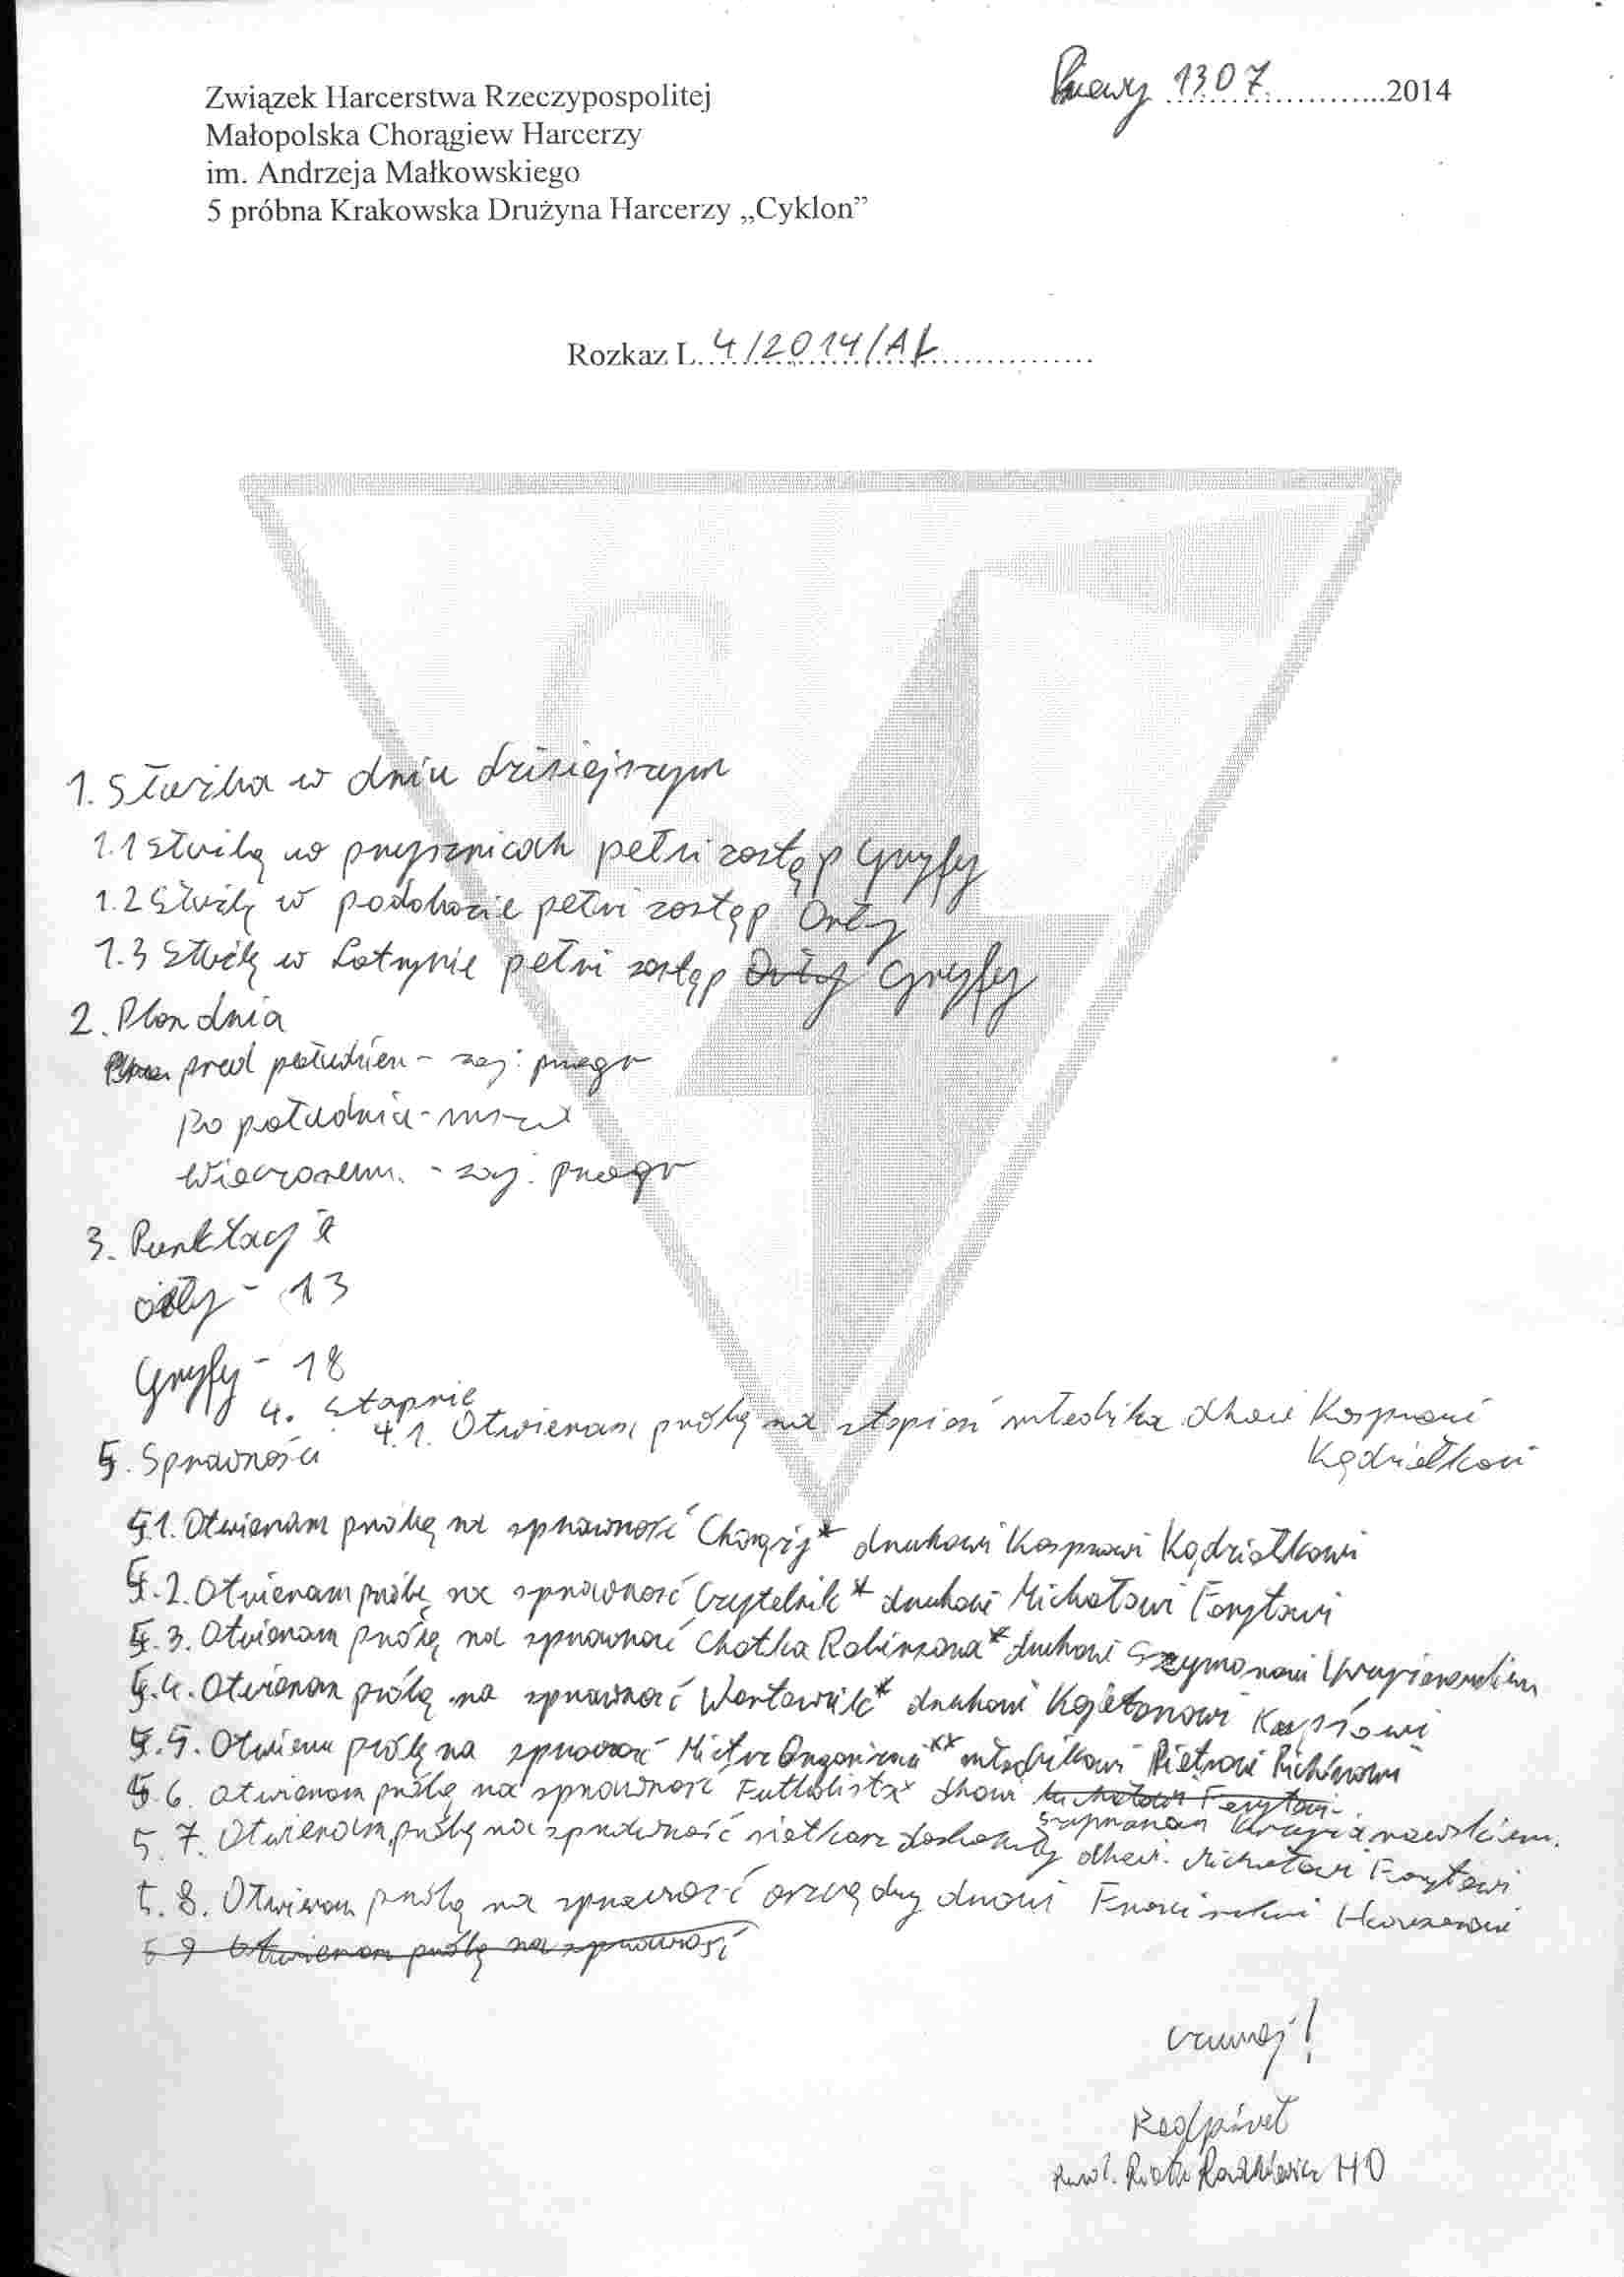 Związek Harcerstwa Rzeczypospolitej
Małopolska Chorągiew Harcerzy
im. Andrzeja Małkowskiego
5 próbna Krakowska Drużyna Harcerzy „Cyklon”
Pniewy 13.07.......2014
Rozkaz L. 4/2014/AL
1. Służba w dniu dzisiejszym
1.1 Służbę w prysznicach pełni zastęp Gryfy
1.2 Służbę w podobozie pełni zastęp Orły
1.3 Służbę w Latrynie pełni zastęp Orły Gryfy
2. Plan dnia
pred południem - zaj. progr
Po południu - msza
Wieczorem. - zaj. progr
3. Punktacja
orły - 13
Gryfy - 18
4. Stopnie
4.1. Otwieram próbę na stopień młodzika dhowi Kasprowi
Kądziołkowi
5. Sprawności
5.1. Otwieram próbę na sprawność Chorąży* druhowi Kasprowi Kądziołkowi
5.2. Otwieram próbę na sprawność Czytelnik* druhowi Michałowi Forytowi
5.3. Otwieram próbę na sprawność Chatka Robinsona* druhowi Szymonowi
5.4. Otwieram próbę na sprawność Wartownik* druhowi Kajetanowi
5.5. Otwieram próbę na sprawność Mistrz Organizacji** młodzikowi Piotrowi
5.6. Otwieram próbę na sprawność Futbolista* dhowi Michałowi Forytowi
Szymonowi
5.7. Otwieram próbę na sprawność siatkarz doskonały dhowi. Michałowi Forytowi
5.8. Otwieram próbę na sprawność oszczędny druhowi Franciszkowi
5 9 Otwieram próbę na sprawność
Czuwaj!
HO